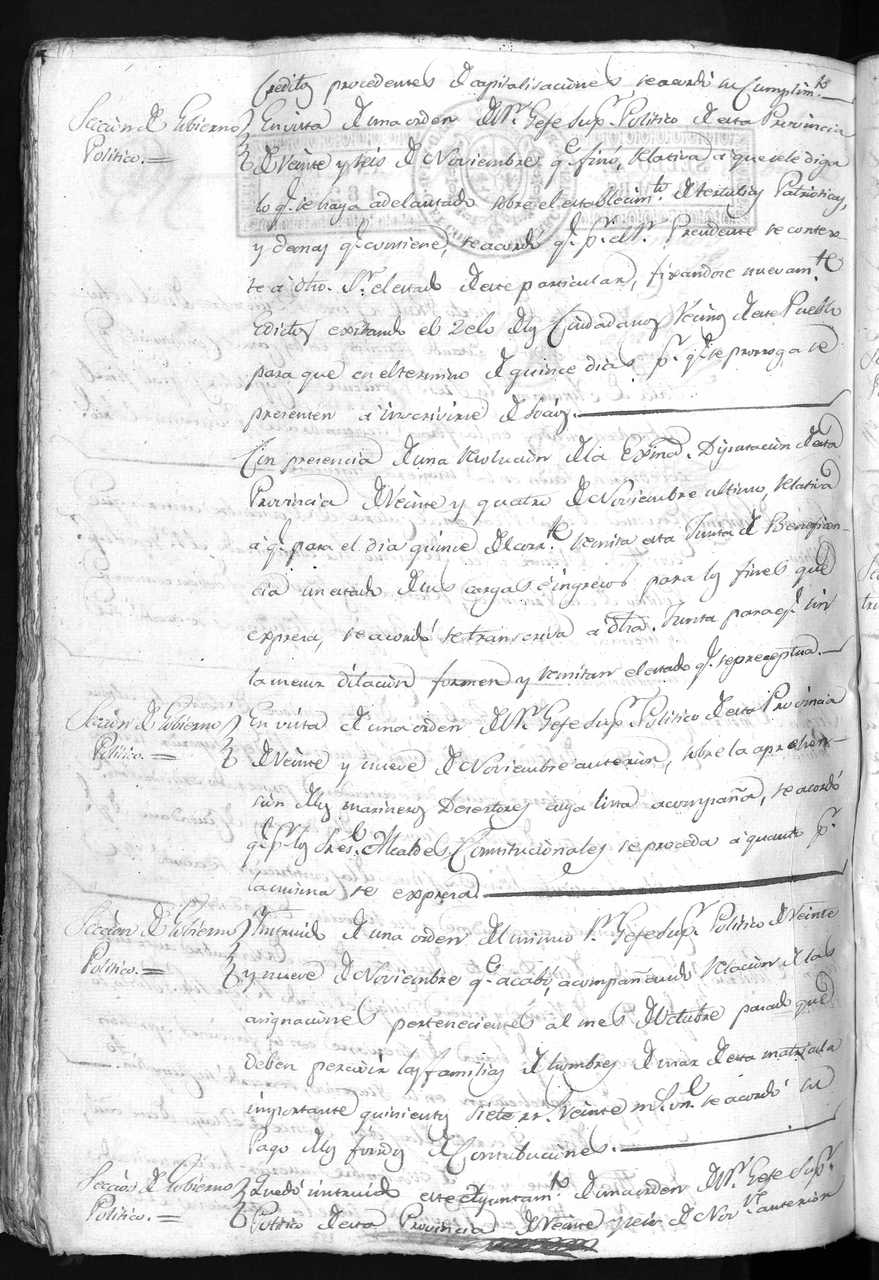 Creditos procedentes de capitalisaciones, se acordó su Cumplim.to
Sección de Gobierno
Politico.=
En vista de una orden del S.r Gefe Sup.r Politico de esta Provincia
de Veinte y seis de Noviembre q.e finó, relativa a que se le diga
lo q.e se haya adelantado sobre el establecim.to de tertulias Patrioticas,
y demas q.e contiene, se acordó q.e p.r el S.r Presidente se contex-
te a dho. S.r el estado de este particular, fixandose nuevam.te
Edictos exitando el Zelo de los Ciudadanos Vecinos de este Pueblo
para que en el termino de quince dias p.r q.e se prorroga se
presenten a inscrivirse de Socios.
En presencia de una resolucion de la Exma. Diputacion de esta
Provincia de Veinte y quatro de Noviembre ultimo, relativa
a q.e para el dia quince del corr.te remita esta Junta de Beneficen-
cia un estado de sus cargas e ingresos para los fines que
expresa, se acordó se transcriva a dha. Junta para q.e sin
la menor dilacion formen y remitan el estado q.e se preceptua.
Sección de Gobierno
Politico.=
En vista de una orden del S.r Gefe Sup.r Politico de esta Provincia
de Veinte y nueve de Noviembre anterior, sobre la aprehen-
sion de los marineros Desertores cuya lista acompaña, se acordó
q.e p.r los Sres. Alcaldes Constitucionales se proceda a quanto p.r
la misma se expresa
Sección de Gobierno
Politico.=
Intruido de una orden del mismo S.r Gefe Sup.r Politico de Veinte
y nueve de Noviembre q.e acabó, acompañando relacion de las
asignaciones pertenecientes al mes de Octubre pasado que
deben percivir las familias de hombres de mar de esta matricula
importante quinientos siete rr. Veinte m. von. se acordó su
Pago de los fondos de Contribuciones.
Sección de Gobierno
Politico.=
Quedó intruido este Ayuntam.to de una orden del S.r Gefe Sup.r
Politico de esta Provincia de Veinte y seis de Nov.re anterior